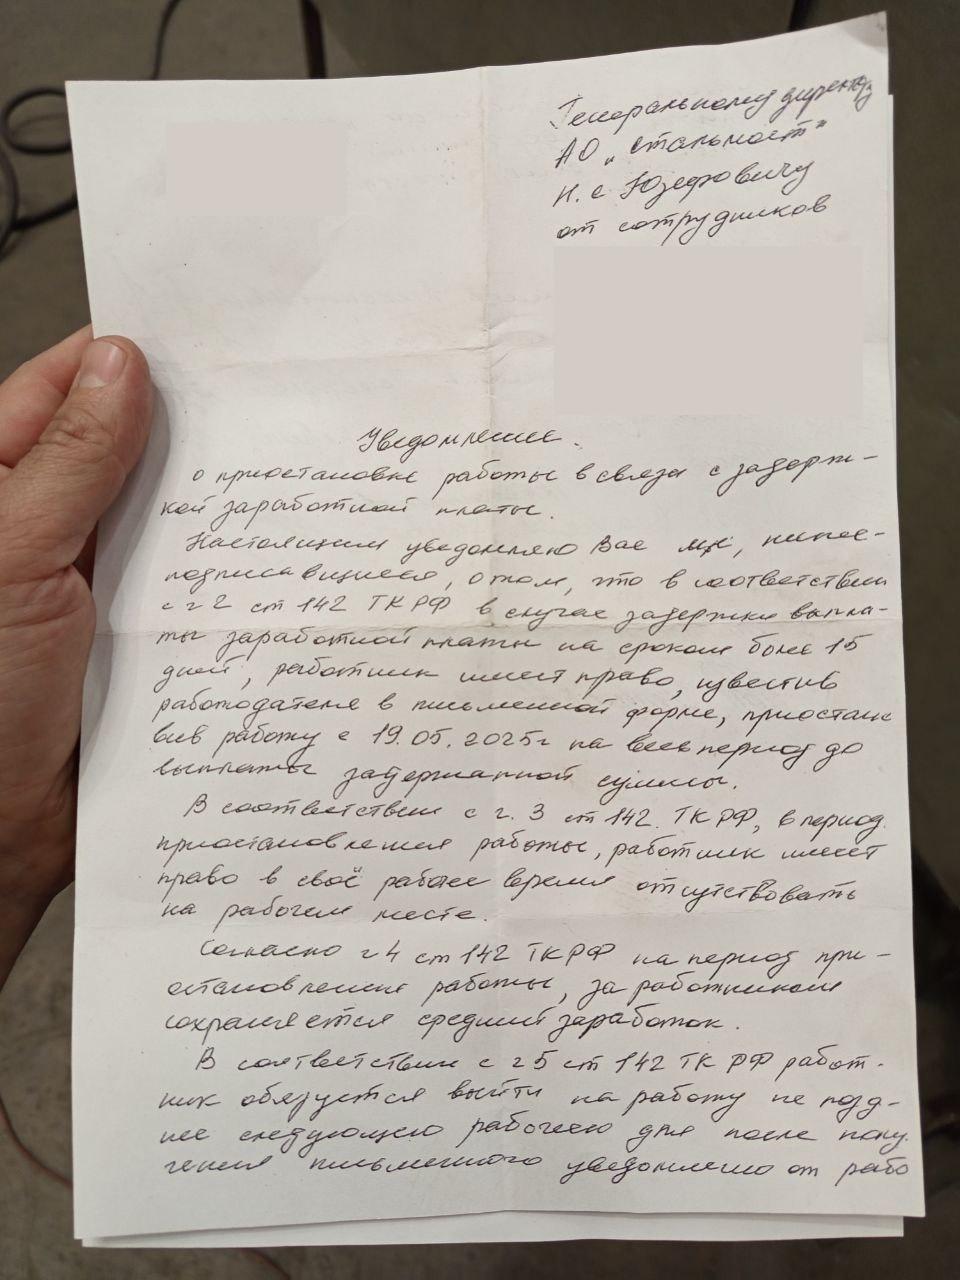 Генеральному директору
АО "Стальмост"
Н. С Юзефовичу
от сотрудников
Уведомление.
о приостановке работы в связи с задерж-
кой заработной платы.
Настоящим уведомляю Вас мы, ниже-
подписавшиеся, о том, что в соответствии
с ч 2 ст 142 ТК РФ в случае задержки выпла-
ты заработной платы на сроком более 15
дней, работник имеет право, известив
работодателя в письменной форме, приостано
вив работу с 19.05.2025г на весь период до
выплаты задержанной суммы.
В соответствии с ч. 3 ст 142 ТК РФ, в период
приостановления работы, работник имеет
право в своё рабочее время отсутствовать
на рабочем месте.
Согласно ч 4 ст 142 ТК РФ на период при-
остановления работы, за работником
сохраняется средний заработок.
В соответствии с ч 5 ст 142 ТК РФ работ-
ник обязуется выйти на работу не позд-
нее следующего рабочего дня после полу-
чения письменного уведомлено от рабо